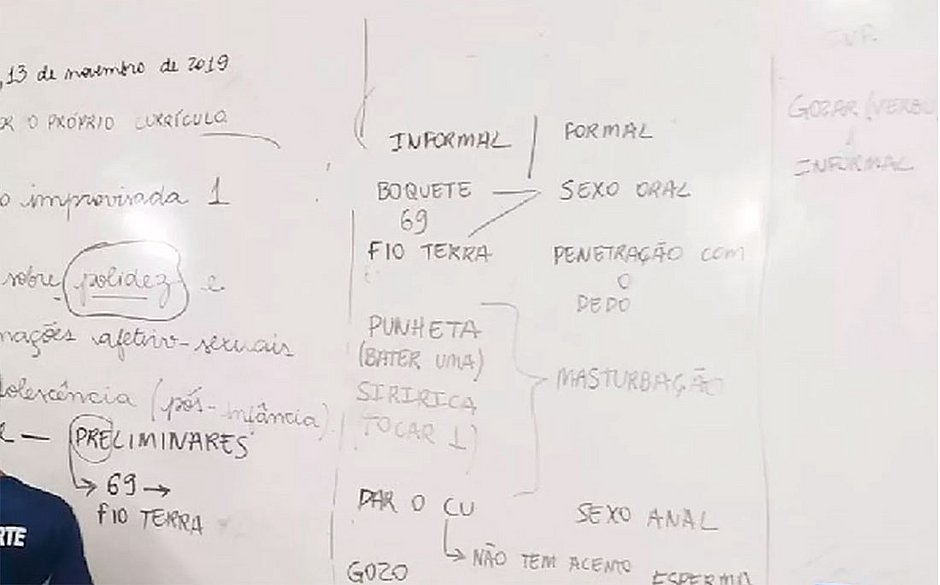 , 13 de novembro de 2019
O PRÓPRIO CURRÍCULO
o improvisada 1
sobre polidez e
mações afetivo-sexuais
dolescência (pós-infância)
— PRELIMINARES
69
FIO TERRA
RTE
INFORMAL
BOQUETE
69
FIO TERRA
PUNHETA
(BATER UMA)
SIRIRICA
TOCAR 1)
DAR O CU
NÃO TEM ACENTO
GOZO
FORMAL
SEXO ORAL
PENETRAÇÃO COM
O
DEDO
MASTURBAÇÃO
SEXO ANAL
ESPERMA
INF.
GOZAR (VERBO
INFORMAL